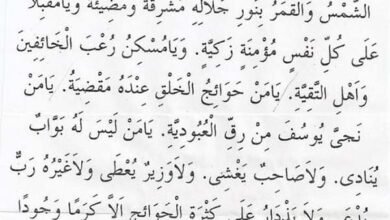 الشَّمْسُ وَالْقَمَرُ بِنُورِ جَلَالِهِ مُشْرِقَةٌ وَمُضِيئَةٌ وَيَامُقْبِلًا
عَلَى كُلِّ نَفْسٍ مُؤْمِنَةٍ زَكِيَّةٍ. وَيَامُسَكِّنَ رُعْبَ الْخَائِفِينَ
وَاَهْلِ التَّقِيَّةِ. يَامَنْ حَوَائِجُ الْخَلْقِ عِنْدَهُ مَقْضِيَةٌ. يَامَنْ
نَجَّى يُوسُفَ مِنْ رِقِّ الْعُبُودِيَّةِ. يَامَنْ لَيْسَ لَهُ بَوَّابٌ
يُنَادَى. وَلَاصَاحِبٌ يَغْشَى. وَلَاوَزِيرٌ يُعْطَى وَلَاغَيْرُهُ رَبٌّ
وَلَا يَزْدَادُ عَلَى كَثْرَةِ الْحَوَائِجِ اِلَّا كَرَمًا وَجُودًا